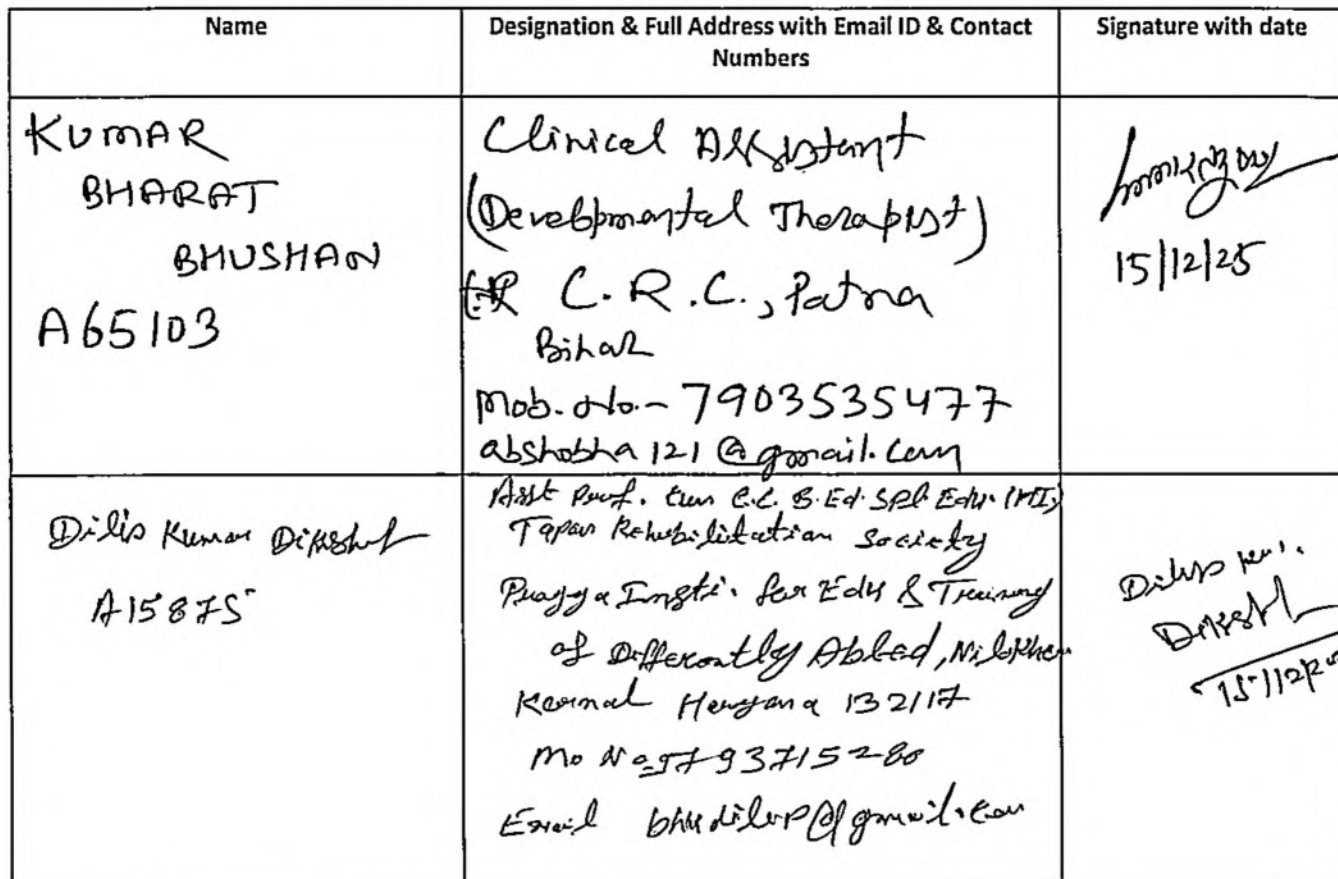 Name
Designation & Full Address with Email ID & Contact
Numbers
Signature with date
KUMAR
BHARAT
BHUSHAN
A65103
Clinical Assistant
(Developmental Therapist)
C.R.C., Patna
Bihar
Mob. No.- 7903535477
abshobha121@gmail.com
15/12/25
Dilip Kumar Dikshit
A15875
Asst Prof. Cum C.C. B.Ed. Spl Edu. (HI)
Tapan Rehabilitation Society
Pragya Insti. for Edu & Training
of Differently Abled, Nilokheri
Karnal Haryana 132117
Mo No. 9793715280
Email bhudilip@gmail.com
Dilip Kr.
Dikshit